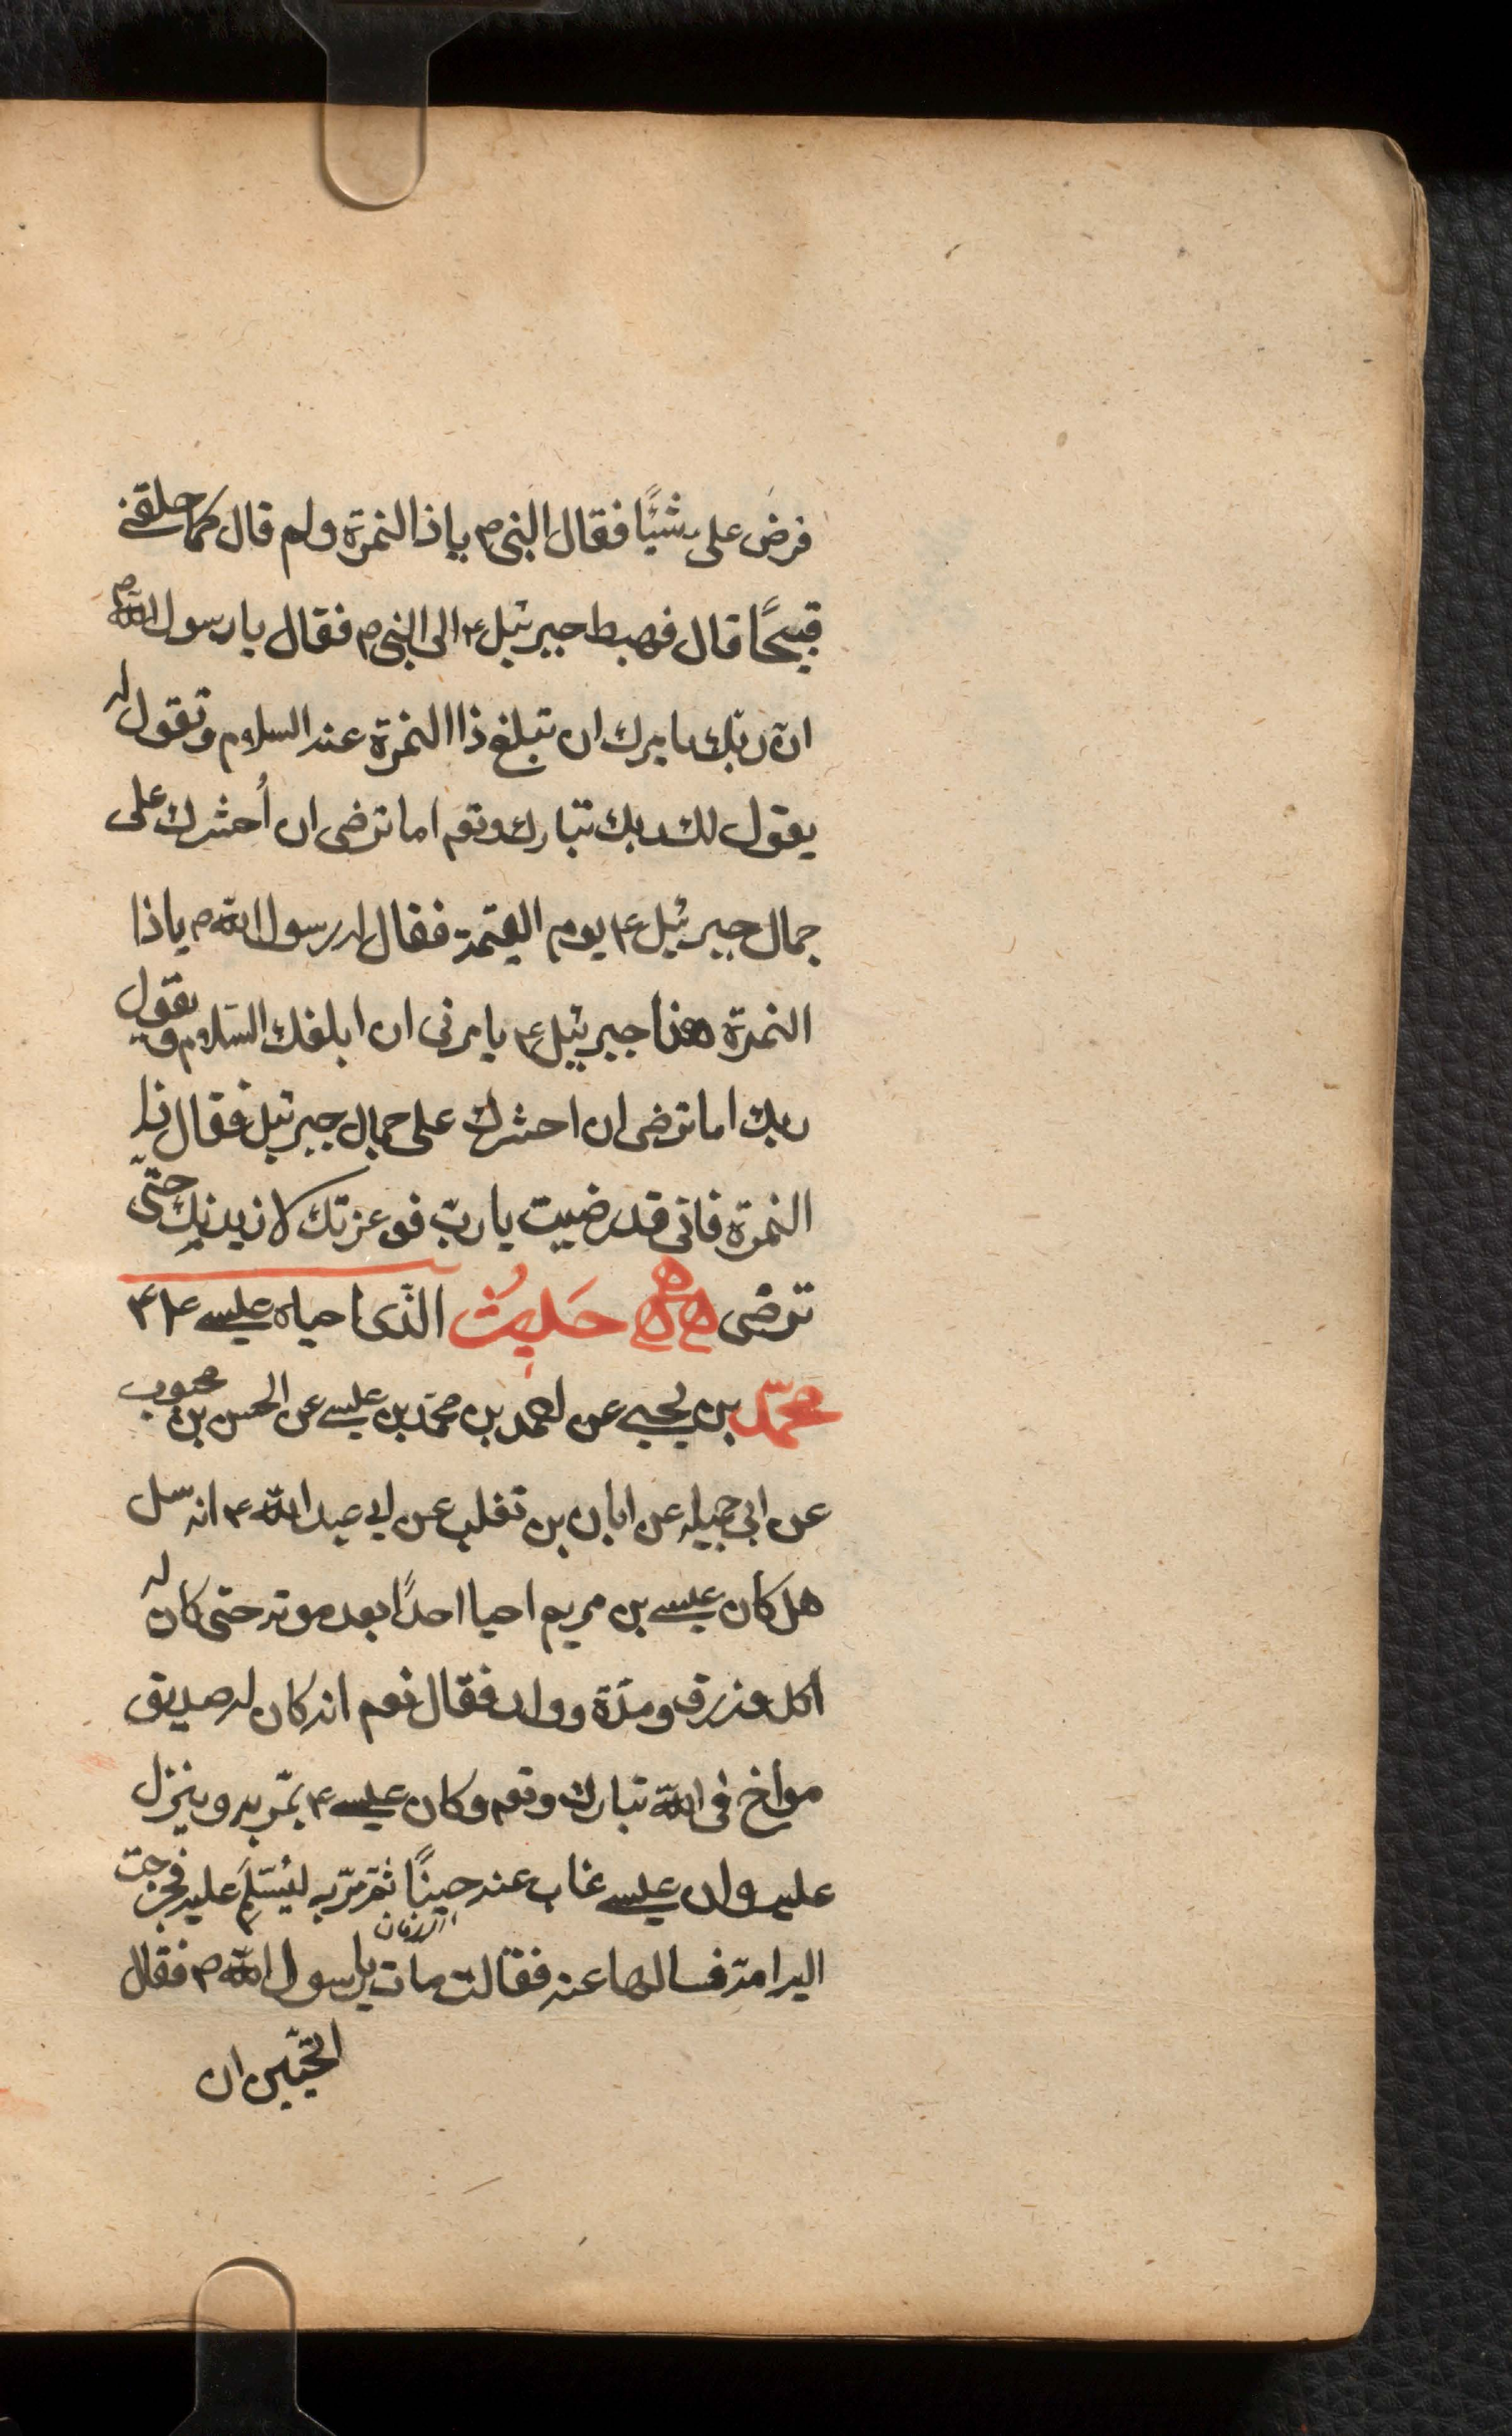 فرض على شيئًا فقال النبى ص ياذا النمرة ولم قال كما خلقنى
قبيحًا قال فهبط جبرئيل ع الى النبى ص فقال يا رسول الله ص
انّ ربّك يامرك ان تبلغ ذا النمرة عنه السلام وتقول له
يقول لك ربك تبارك وتعم اما ترضى ان أحشرك على
جمال جبرئيل ع يوم القيمة فقال له رسول الله ص ياذا
النمرة هذا جبرئيل ع يامرنى ان ابلغك السّلام ويقول
ربك اما ترضى ان احشرك على جمال جبرئيل فقال ذا
النمرة فانى قد رضيت يا ربّ فوعزتك لازيدنك حتّى
ترضى ههه حَديثُ الذّى احياه عيسى ع
محمّد بن يحيى عن احمد بن محمّد بن عيسى عن الحسن بن محبوب
عن ابى جميله عن ابان بن تغلب عن ابى عبد الله ع انه سئل
هل كان عيسى بن مريم احيا احدًا بعد موته حتى كان له
اكل ورزق ومدّة وولد فقال نعم انه كان له صديق
مواخ فى الله تبارك وتعم وكان عيسى ع يمّر به وينزل
عليه وان عيسى غاب عنه حينًا ثمّ مرّبه ليُسَلّمَ عليه فخرجت
اليه امه فسالها عنه فقالت مات يا رسول الله ص فقال
اتحبّين ان